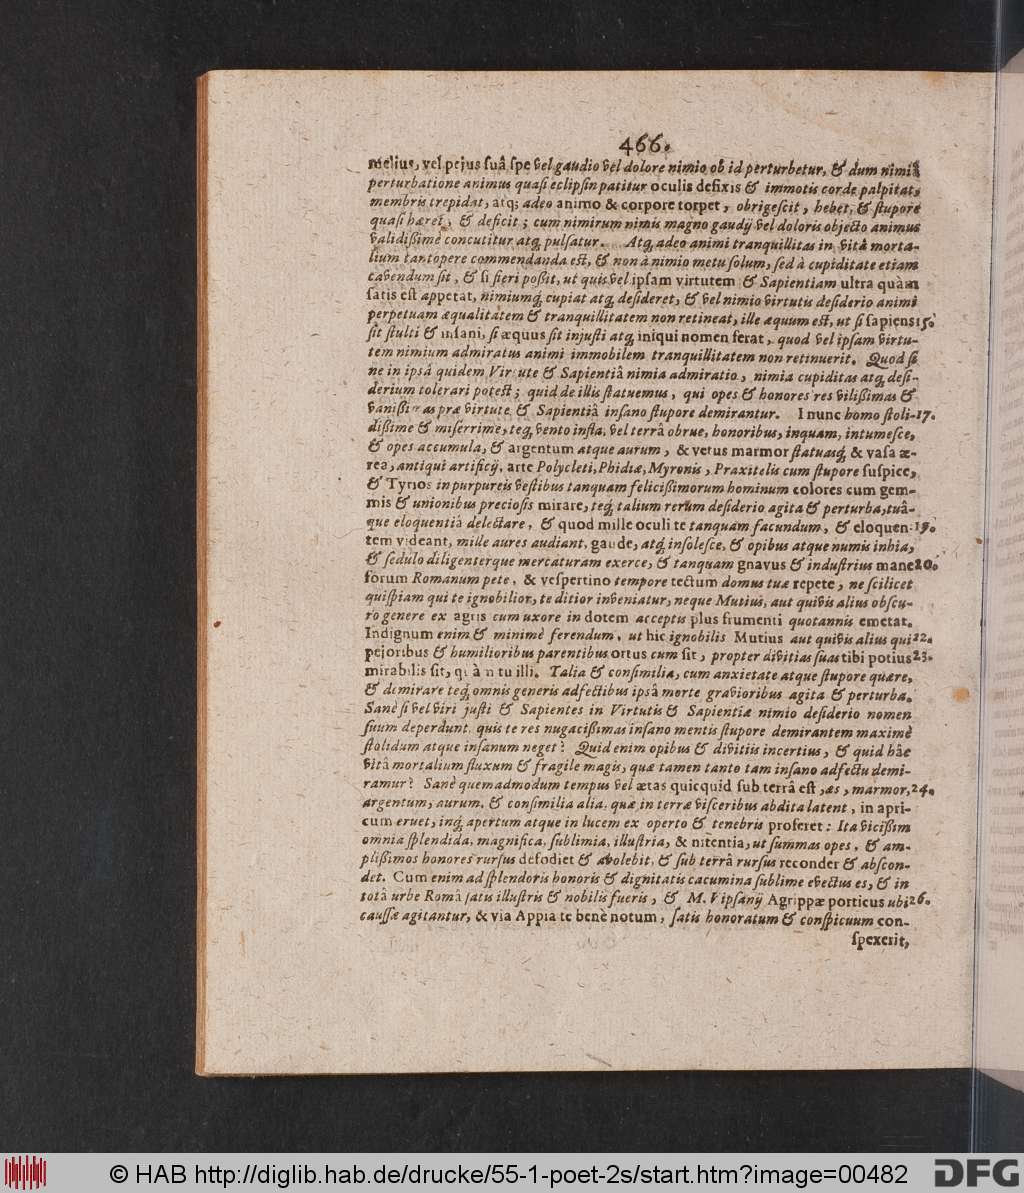 466.
melius, vel pejus suâ spe vel gaudio vel dolore nimio ob id perturbetur, & dum nimiâ
perturbatione animus quasi eclipsin patitur oculis defixis & immotis corde palpitat,
membris trepidat, atq; adeo animo & corpore torpet, obrigescit, hebet, & stupore
quasi hæret, & deficit; cum nimirum nimis magno gaudij vel doloris objecto animus
validißimè concutitur atq, pulsatur. Atq, adeo animi tranquillitas in vitâ morta-
lium tantopere commendanda est, & non à nimio metu solum, sed à cupiditate etiam
cavendum sit, & si fieri poßit, ut quis vel ipsam virtutem & Sapientiam ultra quàm
satis est appetat, nimiumq́ cupiat atq, desideret, & vel nimio virtutis desiderio animi
perpetuam æqualitatem & tranquillitatem non retineat, ille æquum est, ut si sapiens 15.
sit stulti & insani, si æquus sit injusti atq, iniqui nomen ferat, quod vel ipsam virtu-
tem nimium admiratus animi immobilem tranquillitatem non retinuerit. Quod si
ne in ipsâ quidem Virtute & Sapientiâ nimia admiratio, nimia cupiditas atq, desi-
derium tolerari potest; quid de illis statuemus, qui opes & honores res vilißimas &
vanißimas præ virtute & Sapientiâ insano stupore demirantur. I nunc homo stoli- 17.
dißime & miserrime, teq, vento infla, vel terrâ obrue, honoribus, inquam, intumesce,
& opes accumula, & argentum atque aurum, & vetus marmor statuasq́, & vasa æ-
rea, antiqui artificij, arte Polycleti, Phidiæ, Myronis, Praxitelis cum stupore suspice,
& Tyrios in purpureis vestibus tanquam felicißimorum hominum colores cum gem-
mis & unionibus preciosis mirare, teq́, talium rerum desiderio agita & perturba, tuâ-
que eloquentiâ delectare, & quod mille oculi te tanquam facundum, & eloquen- 19.
tem videant, mille aures audiant, gaude, atq́, insolesce, & opibus atque numis inhia,
& sedulo diligenterque mercaturam exerce, & tanquam gnavus & industrius mane 20.
forum Romanum pete, & vespertino tempore tectum domus tuæ repete, ne scilicet
quispiam qui te ignobilior, te ditior inveniatur, neque Mutius, aut quivis alius obscu-
ro genere ex agris cum uxore in dotem acceptis plus frumenti quotannis emetat.
Indignum enim & minimè ferendum, ut hic ignobilis Mutius aut quivis alius qui 22.
pejoribus & humilioribus parentibus ortus cum sit, propter divitias suas tibi potius 23.
mirabilis sit, quàm tu illi. Talia & consimilia, cum anxietate atque stupore quære,
& demirare teq́, omnis generis adfectibus ipsâ morte gravioribus agita & perturba.
Sanè si vel viri justi & Sapientes in Virtutis & Sapientiæ nimio desiderio nomen
suum deperdunt, quis te res nugacißimas insano mentis stupore demirantem maximè
stolidum atque insanum neget? Quid enim opibus & divitiis incertius, & quid hâc
vitâ mortalium fluxum & fragile magis, quæ tamen tanto tam insano adfectu demi-
ramur? Sanè quemadmodum tempus vel ætas quicquid sub terrâ est, æs, marmor, 24.
argentum, aurum, & consimilia alia, quæ in terræ visceribus abdita latent, in apri-
cum eruet, inq́, apertum atque in lucem ex operto & tenebris proferet: Ita vicißim
omnia splendida, magnifica, sublimia, illustria, & nitentia, ut summas opes, & am-
plißimos honores rursus defodiet & abolebit, & sub terrâ rursus recondet & abscon-
det. Cum enim ad splendoris honoris & dignitatis cacumina sublime evectus es, & in
totâ urbe Româ satis illustris & nobilis fueris, & M. Vipsanij Agrippæ porticus ubi 26.
caussæ agitantur, & via Appia te benè notum, satis honoratum & conspicuum con-
spexerit,
© HAB http://diglib.hab.de/drucke/55-1-poet-2s/start.htm?image=00482
DFG